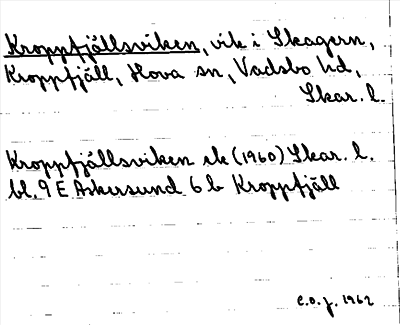 Kroppfjällsviken, vik i Skagern,
Kroppfjäll, Hova sn, Vadsbo hd,
Skar. l.
Kroppfjällsviken ek (1960) Skar. l.
bl. 9 E Askersund 6 b Kroppfjäll
C.O.J. 1962